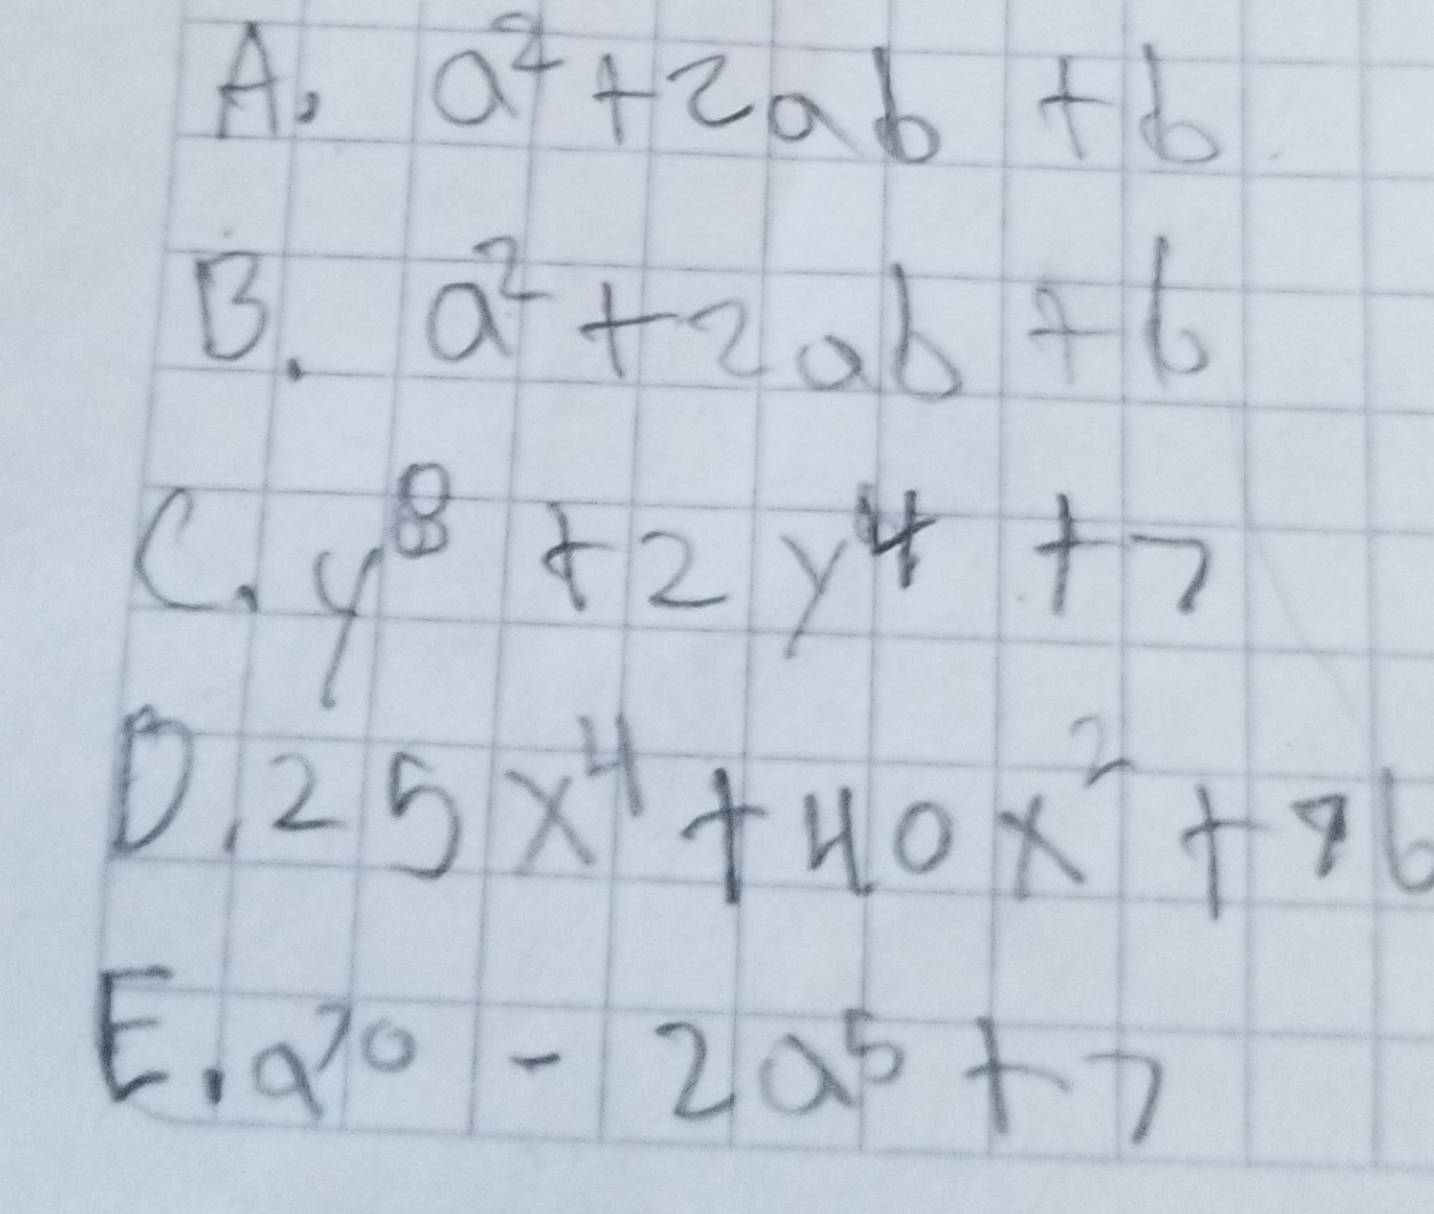 A. a² + 2ab + b
B. a² + 2ab + b
C. y⁸ + 2y⁴ + 1
D. 25x⁴ + 40x² + 16
E. a¹⁰ - 2a⁵ + 1